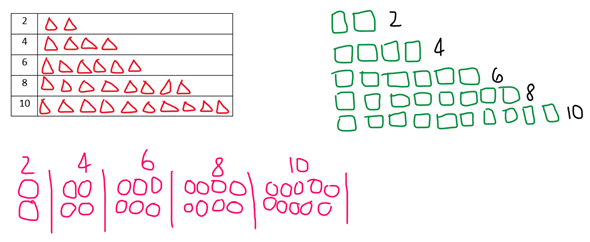 2
4
6
8
10
2
4
6
8
10
2 4 6 8 10